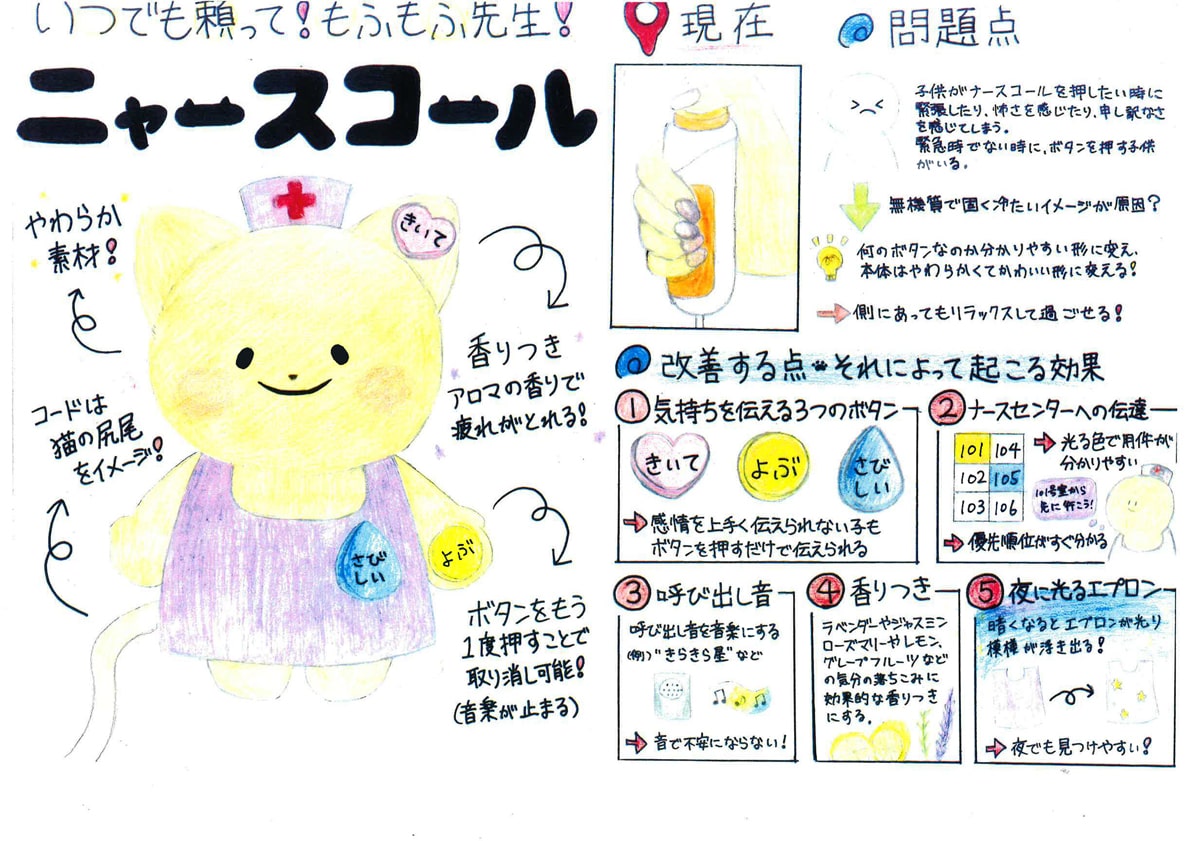 いつでも頼って!もふもふ先生!
ニャースコール
やわらか
素材!
きいて
香りつき
アロマの香りで
疲れがとれる!
コードは
猫の尻尾
をイメージ!
さび
しい
よぶ
ボタンをもう
1度押すことで
取り消し可能!
(音楽が止まる)
現在
問題点
子供がナースコールを押したい時に
緊張したり、怖さを感じたり、申し訳なさ
を感じてしまう。
緊急時でない時に、ボタンを押す子供
がいる。
無機質で固く冷たいイメージが原因?
何のボタンなのか分かりやすい形に変え、
本体はやわらかくてかわいい形に変える!
側にあってもリラックスして過ごせる!
改善する点それによって起こる効果
1 気持ちを伝える3つのボタン
きいて
よぶ
さび
しい
感情を上手く伝えられない子も
ボタンを押すだけで伝えられる
2 ナースセンターへの伝達
101 104
102 105
103 106
光る色で用件が
分かりやすい
101号室から
先に行こう!
優先順位がすぐ分かる
3 呼び出し音
呼び出し音を音楽にする
(例)"きらきら星"など
音で不安にならない!
4 香りつき
ラベンダーやジャスミン
ローズマリーやレモン、
グレープフルーツなど
の気分の落ちこみに
効果的な香りつき
にする。
5 夜に光るエプロン
暗くなるとエプロンが光り
模様が浮き出る!
夜でも見つけやすい!